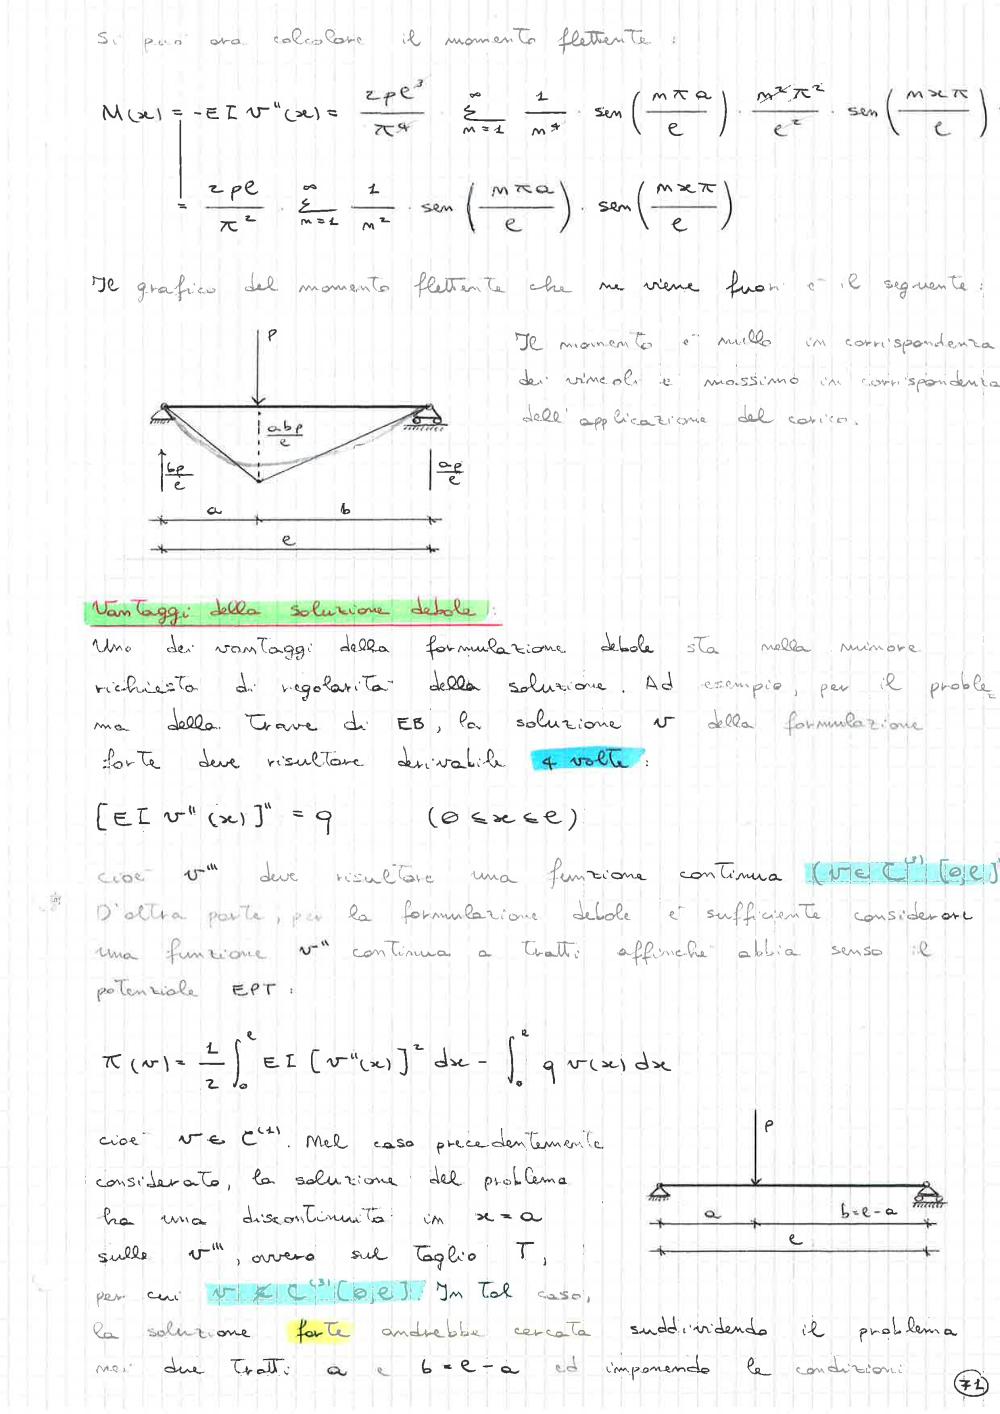 Si può ora calcolare il momento flettente:
M(x) = -EI v''(x) = 2pl³/π⁴ · Σ_{m=1}^{∞} 1/m⁴ · sen(mπa/l) · m²π²/l² · sen(mxπ/l) ·
= 2pl/π² · Σ_{m=1}^{∞} 1/m² · sen(mπa/l) · sen(mxπ/l)
Il grafico del momento flettente che ne viene fuori è il seguente:
P
Il momento è nullo in corrispondenza
dei vincoli e massimo in corrispondenza
dell'applicazione del carico.
abp/l
bp/l
ap/l
a b
l
Vantaggi della soluzione debole:
Uno dei vantaggi della formulazione debole sta nella minore
richiesta di regolarità della soluzione. Ad esempio, per il proble_
ma della trave di EB, la soluzione v della formulazione
forte deve risultare derivabile 4 volte:
[EI v''(x)]'' = q (0 ≤ x ≤ l)
cioè v''' deve risultare una funzione continua (v ∈ C⁽³⁾ [0,l]
D'altra parte, per la formulazione debole è sufficiente considerare
una funzione v'' continua a tratti affinché abbia senso il
potenziale EPT:
π(v) = 1/2 ∫₀ˡ EI [v''(x)]² dx - ∫₀ˡ q v(x) dx
cioè v ∈ C⁽¹⁾. Nel caso precedentemente
considerato, la soluzione del problema
ha una discontinuità in x = a
sulla v''', ovvero sul taglio T,
per cui v ∉ C⁽³⁾[0,l]. In tal caso,
P
a b=l-a
l
la soluzione forte andrebbe cercata suddividendo il problema
nei due tratti a e b = l - a ed imponendo le condizioni
71